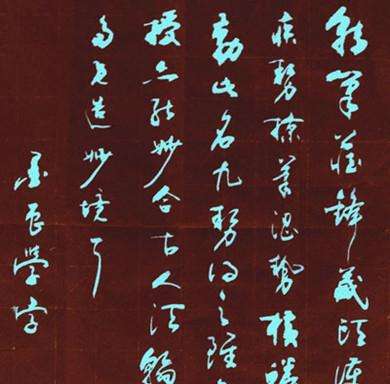 转筆藏鋒藏頭護
疾勢掠筆澀勢橫鱗
勒此名九勢得之雖
授亦能妙合古人須翰
多即造妙境耳
墨學字